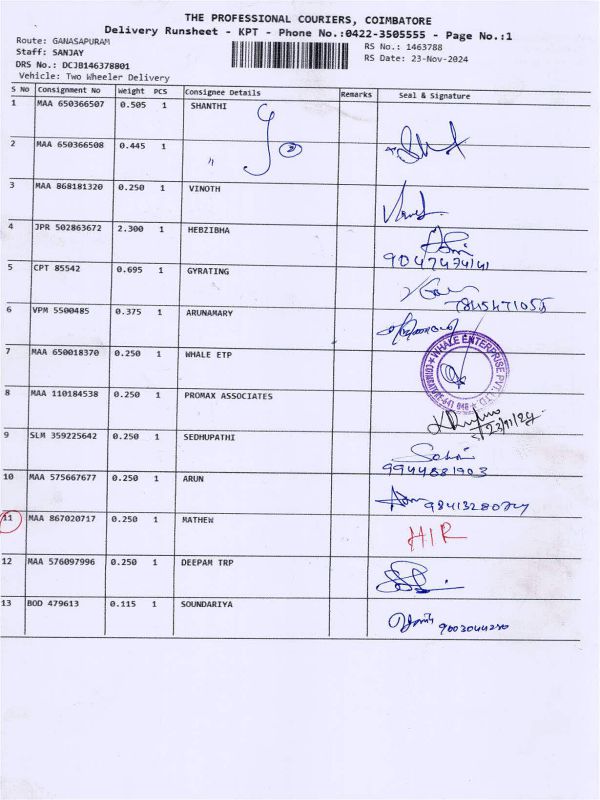 THE PROFESSIONAL COURIERS, COIMBATORE
Delivery Runsheet - KPT - Phone No.:0422-3505555 - Page No.:1
Route: GANASAPURAM RS No.: 1463788
Staff: SANJAY RS Date: 23-Nov-2024
DRS No.: DCJB146378801
Vehicle: Two Wheeler Delivery
S No Consignment No Weight PCS Consignee Details Remarks Seal & Signature
1 MAA 650366507 0.505 1 SHANTHI
2 MAA 650366508 0.445 1 " 2
3 MAA 868181320 0.250 1 VINOTH
4 JPR 502863672 2.300 1 HEBZIBHA
9047474141
5 CPT 85542 0.695 1 GYRATING
7845471055
6 VPM 5500485 0.375 1 ARUNAMARY
7 MAA 650018370 0.250 1 WHALE ETP
WHALE ENTERPRISE PVT. LTD
8 MAA 110184538 0.250 1 PROMAX ASSOCIATES
23/11/24
9 SLM 359225642 0.250 1 SEDHUPATHI
9944681903
10 MAA 575667677 0.250 1 ARUN
11 MAA 867020717 0.250 1 MATHEW
HIR
12 MAA 576097996 0.250 1 DEEPAM TRP
13 BOD 479613 0.115 1 SOUNDARIYA
9003044250